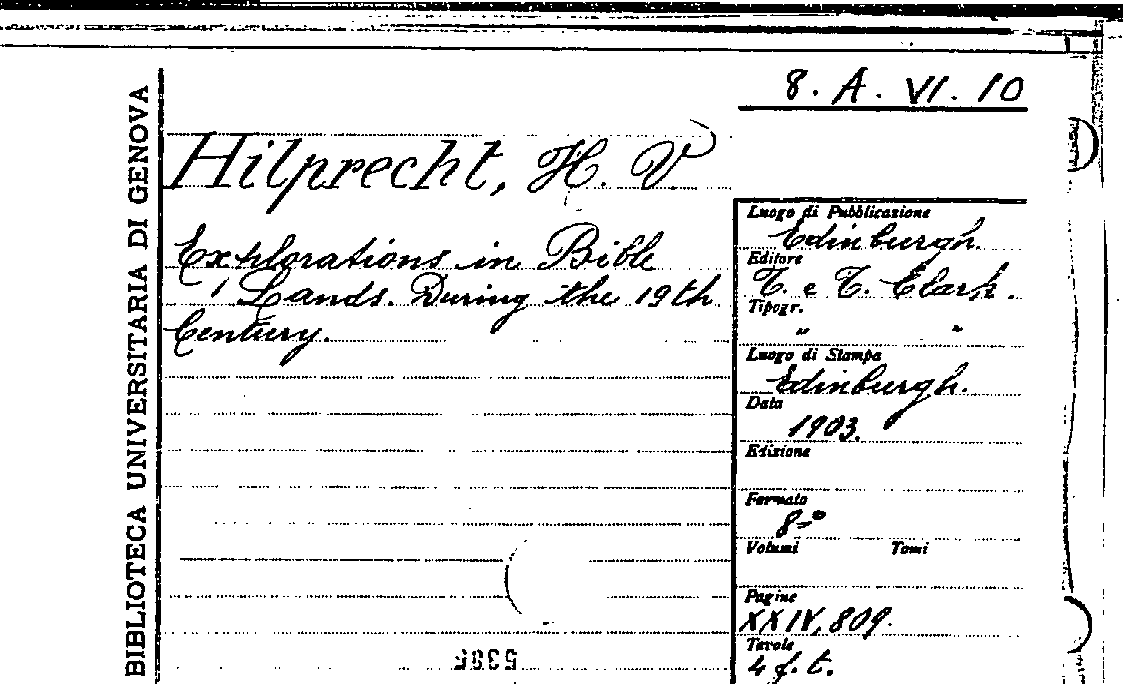 8. A. VI. 10
BIBLIOTECA UNIVERSITARIA DI GENOVA
Hilprecht, H. V
Explorations in Bible
Lands. During the 19th
Century.
Luogo di Pubblicazione
Edinburgh.
Editore
T. e T. Clark.
Tipogr.
" "
Luogo di Stampa
Edinburgh.
Data
1903.
Edizione
Formato
8º
Volumi Tomi
Pagine
XXIV, 809.
Tavole
4 f. t.